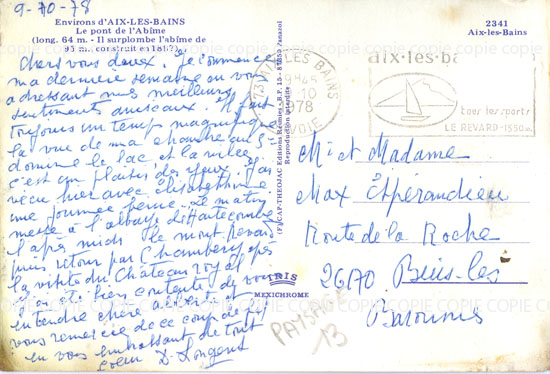 9-10-78
Environs d'AIX-LES-BAINS
Le pont de l'Abîme
(long. 64 m. - Il surplombe l'abîme de
95 m. construit en 1887)
2341
Aix-les-Bains
Chers vous deux. Je commence
ma dernière semaine en vous
adressant mes meilleurs
sentiments amicaux. Il fait
toujours un temps magnifique
la vue de ma chambre au 5e
domine le lac et la ville
c'est un plaisir des yeux. J'ai
vécu hier avec
une journée pleine. Le matin
messe à l'abbaye d'Hautecombe
l'après midi le mont Revard
puis retour par Chambéry après
la visite du Château royal
J'ai été bien contente de vous
entendre chère Alberte et
vous remercie de ce coup de fil
en vous embrassant de tout
coeur D. Longent
CAP-THEOJAC Editions Réunies - R.F.
Reproduction interdite
IRIS
MEXICHROME
73 AIX LES BAINS
SAVOIE
10
1978
aix-les-ba
tous les sports
LE REVARD-1550m
M. et Madame
Max Espérandieu
Route de la Roche
26170 Buis-les
Baronnies
PAYSAGE
13
COPIE COPIE COPIE COPIE